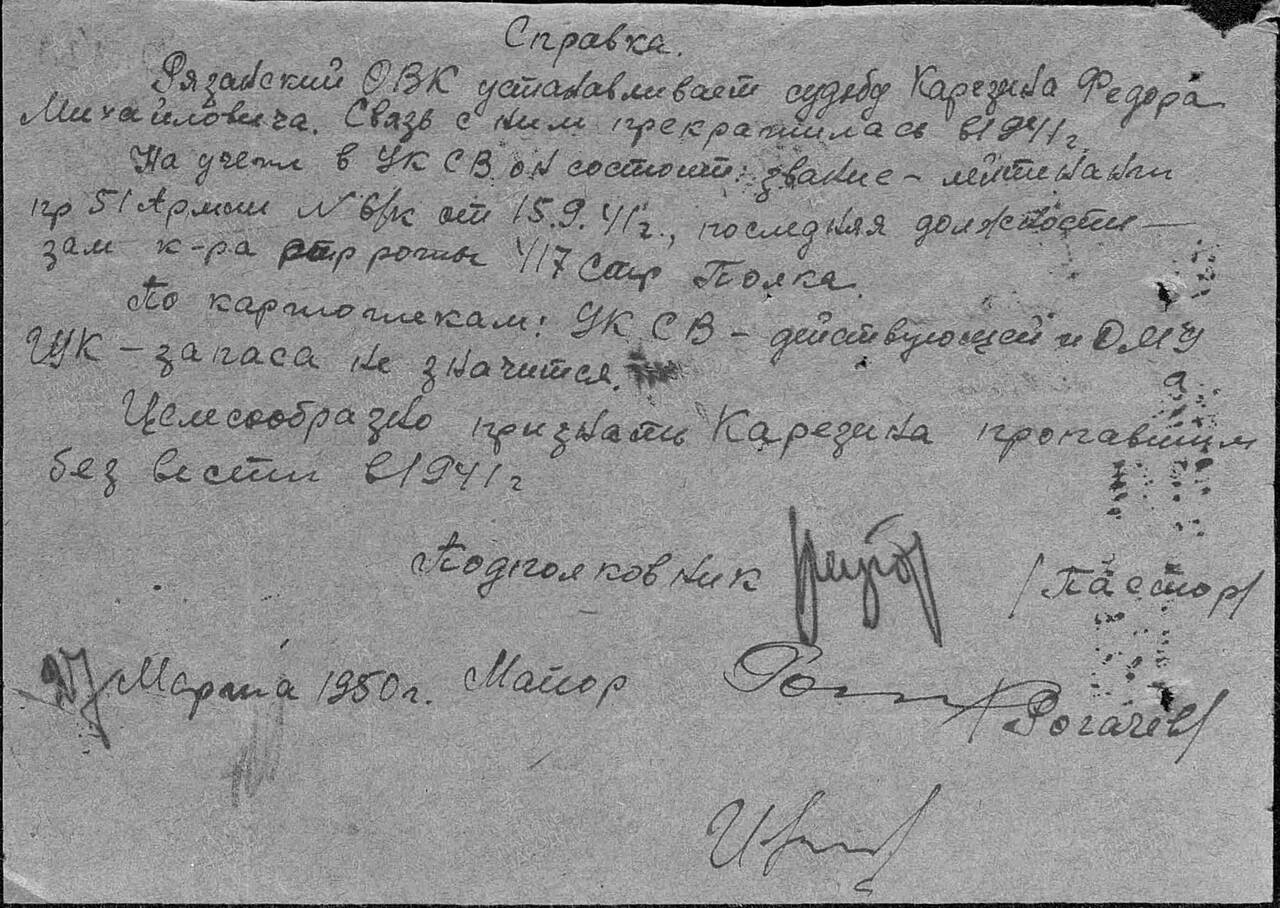 Справка.
Рязанский ОВК устанавливает судьбу Карезина Федора
Михайловича. Связь с ним прекратилась в 1941 г.
На учете в УК СВ он состоит: звание – лейтенант
пр 51 Армии N 6/к от 15.9.41 г., последняя должность –
зам к-ра стр роты 417 Стр Полка.
По картотекам: УК СВ – действующей и ОМУ
ЦУК – запаса не значится.
Целесообразно признать Карезина пропавшим
без вести в 1941 г
Подполковник /Пастор/
27 Марта 1950 г. Майор /Рогачев/